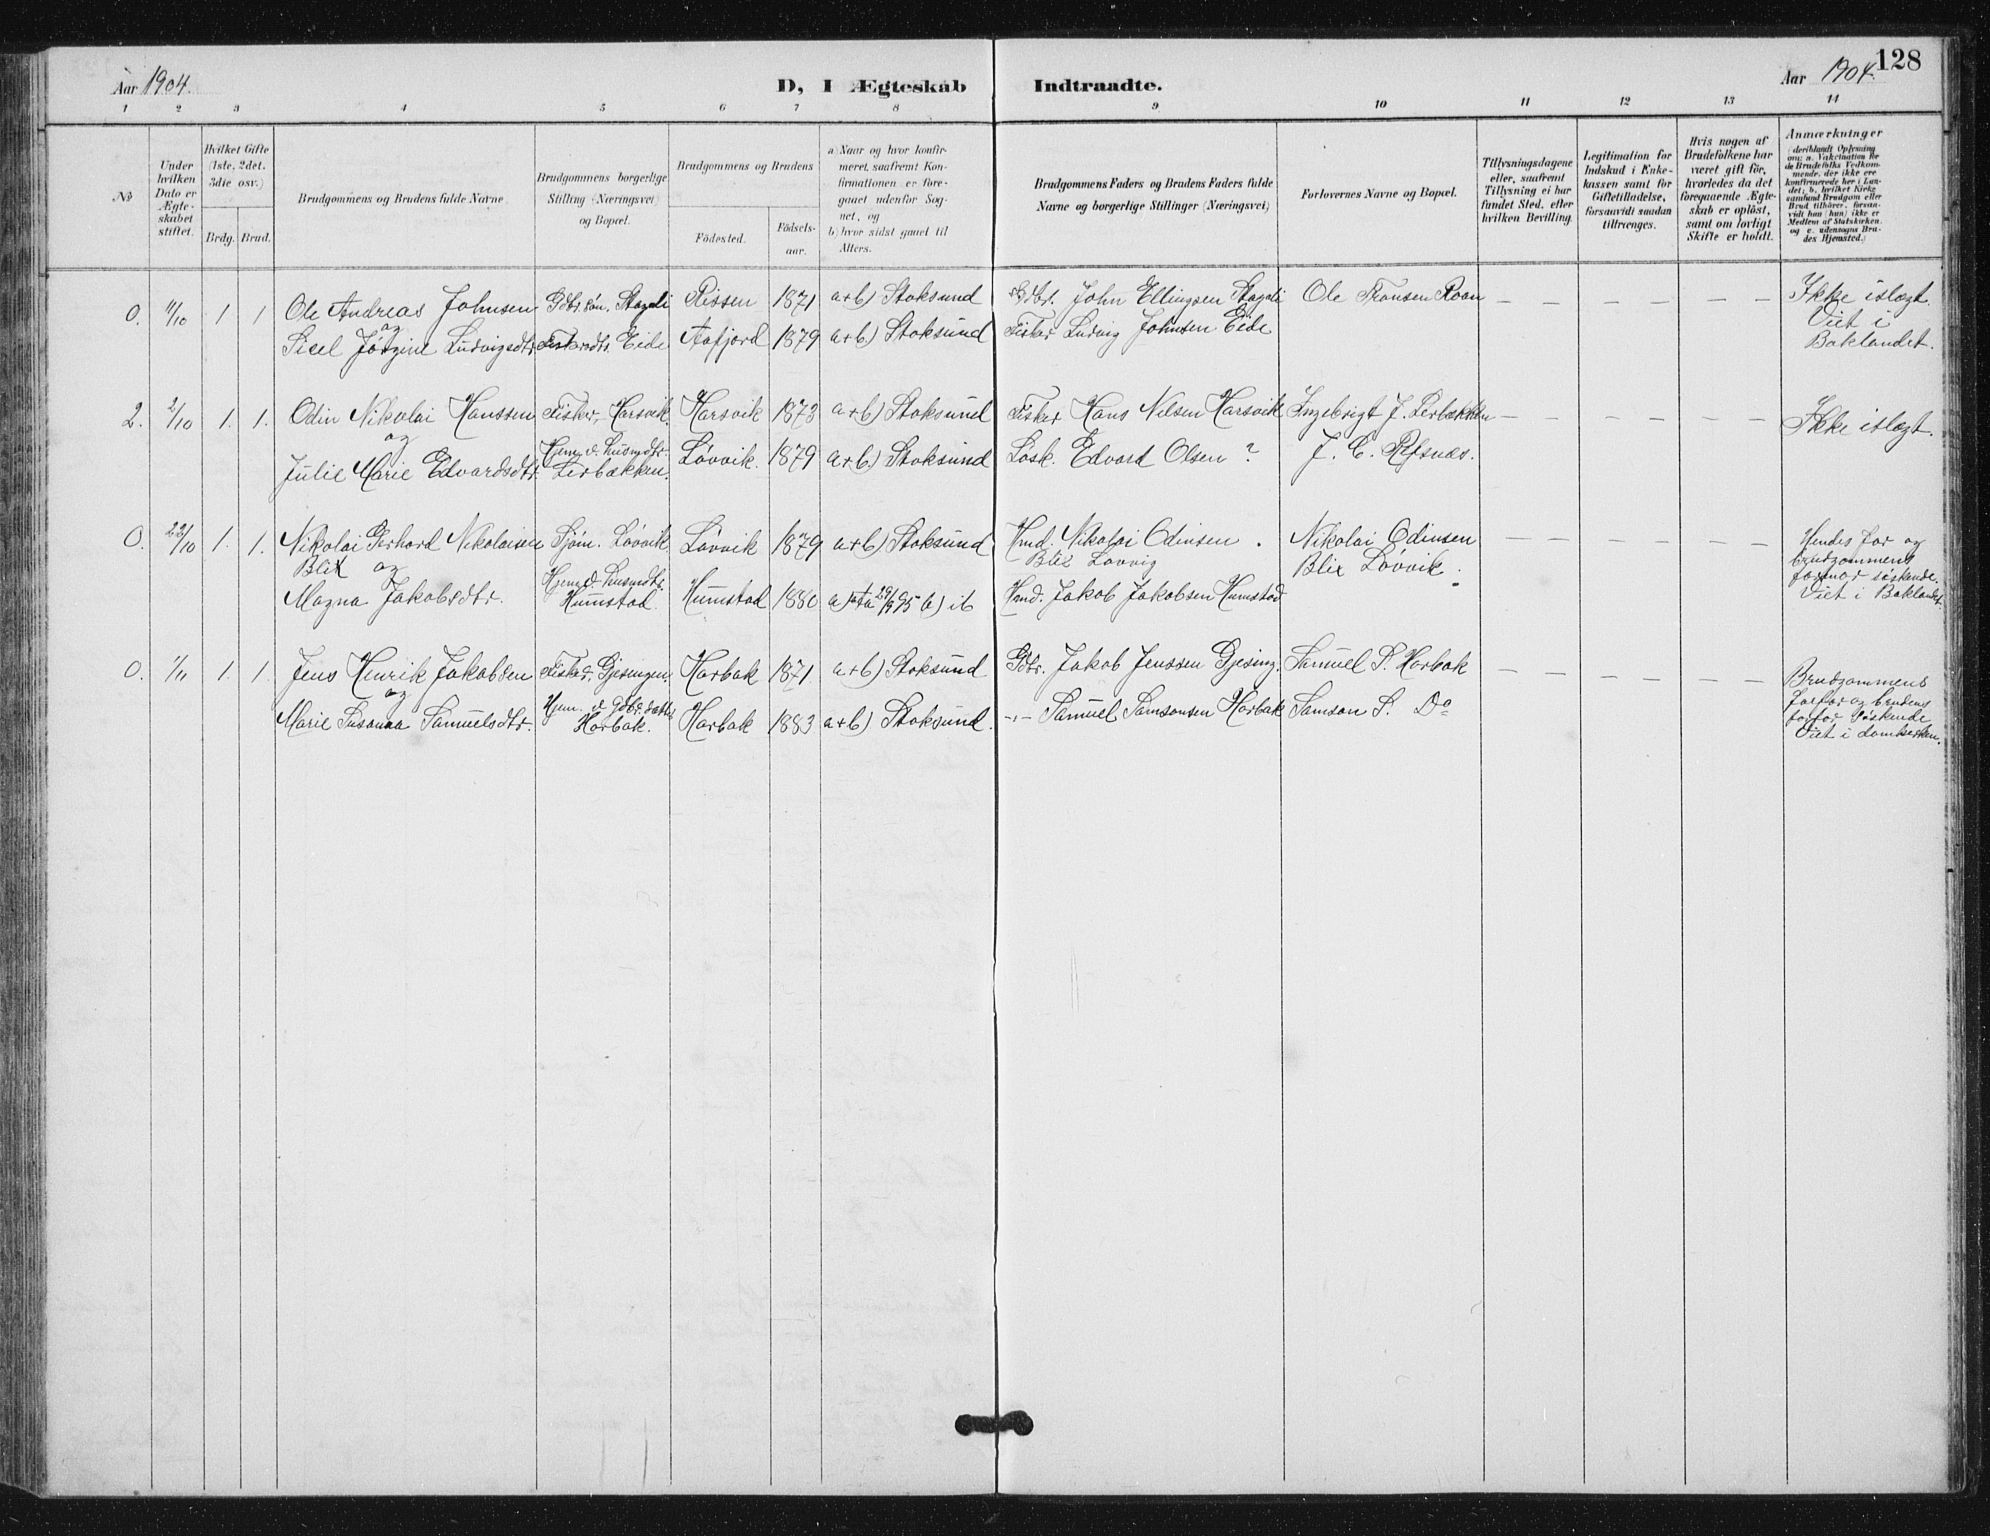 128
Aar 1904.
D, I Ægteskab Indtraadte.
Aar 1904.
1 2 3 4 5 6 7 8 9 10 11 12 13 14
No
Under hvilken Dato er Ægte-skabet stiftet.
Hvilket Gifte (1ste, 2det, 3die osv.)
Brdg. Brud.
Brudgommens og Brudens fulde Navne.
Brudgommens borgerlige Stilling (Næringsvei) og Bopæl.
Brudgommens og Brudens
Födested.
Födsels-aar.
a) Naar og hvor konfir-meret, saafremt Kon-firmationen er fore-gaaet udenfor Sog-net, og
b) hvor sidst gaaet til Alters.
Brudgommens Faders og Brudens Faders fulde Navne og borgerlige Stillinger (Næringsvei)
Forlovernes Navne og Bopæl.
Tillysningsdagene eller, saafremt Tillysning ei har fundet Sted, efter hvilken Bevilling.
Legitimation for Indskud i Enke-kassen samt for Giftetilladelse, forsaavidt saadan tiltrænges.
Hvis nogen af Brudefolkene har været gift før, hvorledes da det foregaaende Ægte-skab er oplöst, samt om lovligt Skifte er holdt.
Anmærkninger (deriblandt Oplysning om: a. Vakcination for de Brudefolks Vedkom-mende, der ikke ere konfirmerede her i Lan-det; b. hvilket Kirke-samfund Brudgom eller Brud tilhörer, forsaa-vidt han (hun) ikke er Medlem af Statskirken, og c. udensogns Bru-des Hjemsted.)
0. 11/10 1 1 Ole Andreas Johnsen Gdbr.søn. Stageli Rissen 1871 a+b) Stoksund Gdbr. John Ellingsen Stageli Ole Fransen Roan — — — — Ikke i slægt.
og Viet i
Sicel Jørgine Ludvigsdtr. Fiskerdtr. Eide Aafjord 1879 a+b) Stoksund Fisker Ludvig Johnsen Eide Baklandet.
2. 2/10 1. 1. Odin Nikolai Hanssen Fisker, Harsvik Harsvik 1873 a+b) Stoksund Fisker Hans Nilsen Harsvik Ingebrigt J. Lerbækken — — — — Ikke i slægt.
og Hjem.v. husmdtr.
Julie Marie Edvardsdtr. Lerbækken. Løvvik. 1879 a+b.) Stoksund Løsk. Edvard Olsen ? J. E. Refsnæs.
0. 22/10 1. 1. Nikolai Gerhard Nikolaisen Sjøm. Løvvik Løvvik 1879 a+b) Stoksund Hmd. Nikolai Odinsen . Nikolai Odinsen — — — — Hendes far og
Blix og Blix Løvvig Blix Løvvik. brudgommens
Hjem.v. husmdtr. farmor søskende.
Magna Jakobsdtr. Humstad. Humstad 1880 a) 29/9 95 b) ib Hmd. Jakob Jakobsen Humstad Viet i Baklandet.
0. 1/11 1. 1. Jens Henrik Jakobsen Fisker, Gjesingen. Harbak 1871. a+b) Stoksund Gdbr. Jakob Jenssen Gjesing. Samuel S. Harbak — — — — Brudgommens
og Hjem. v. Gdbr.datter farfar og brudens
Marie Susanna Samuelsdtr. Harbak. Harbak 1883 a+b) Stoksund. -"- Samuel Samsonsen Harbak Samson S. Do farfar Søskende
Viet i Domkirken.